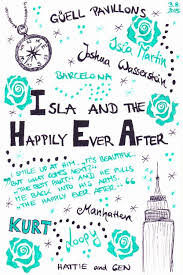 GÜELL PAVILLONS
3.8
2015
Isla Martin
Joshua Wasserstein
BARCELONA
ISLA AND THE
HAPPILY EVER AFTER
SMILE UP AT HIM. "IT'S BEAUTIFUL
BUT WHAT COMES NEXT?"
"THE BEST PART": AND HE PULLS
ME BACK INTO HIS ARMS.
"THE HAPPILY EVER AFTER"
Manhattan
KURT
Snoopy
HATTIE and GEN